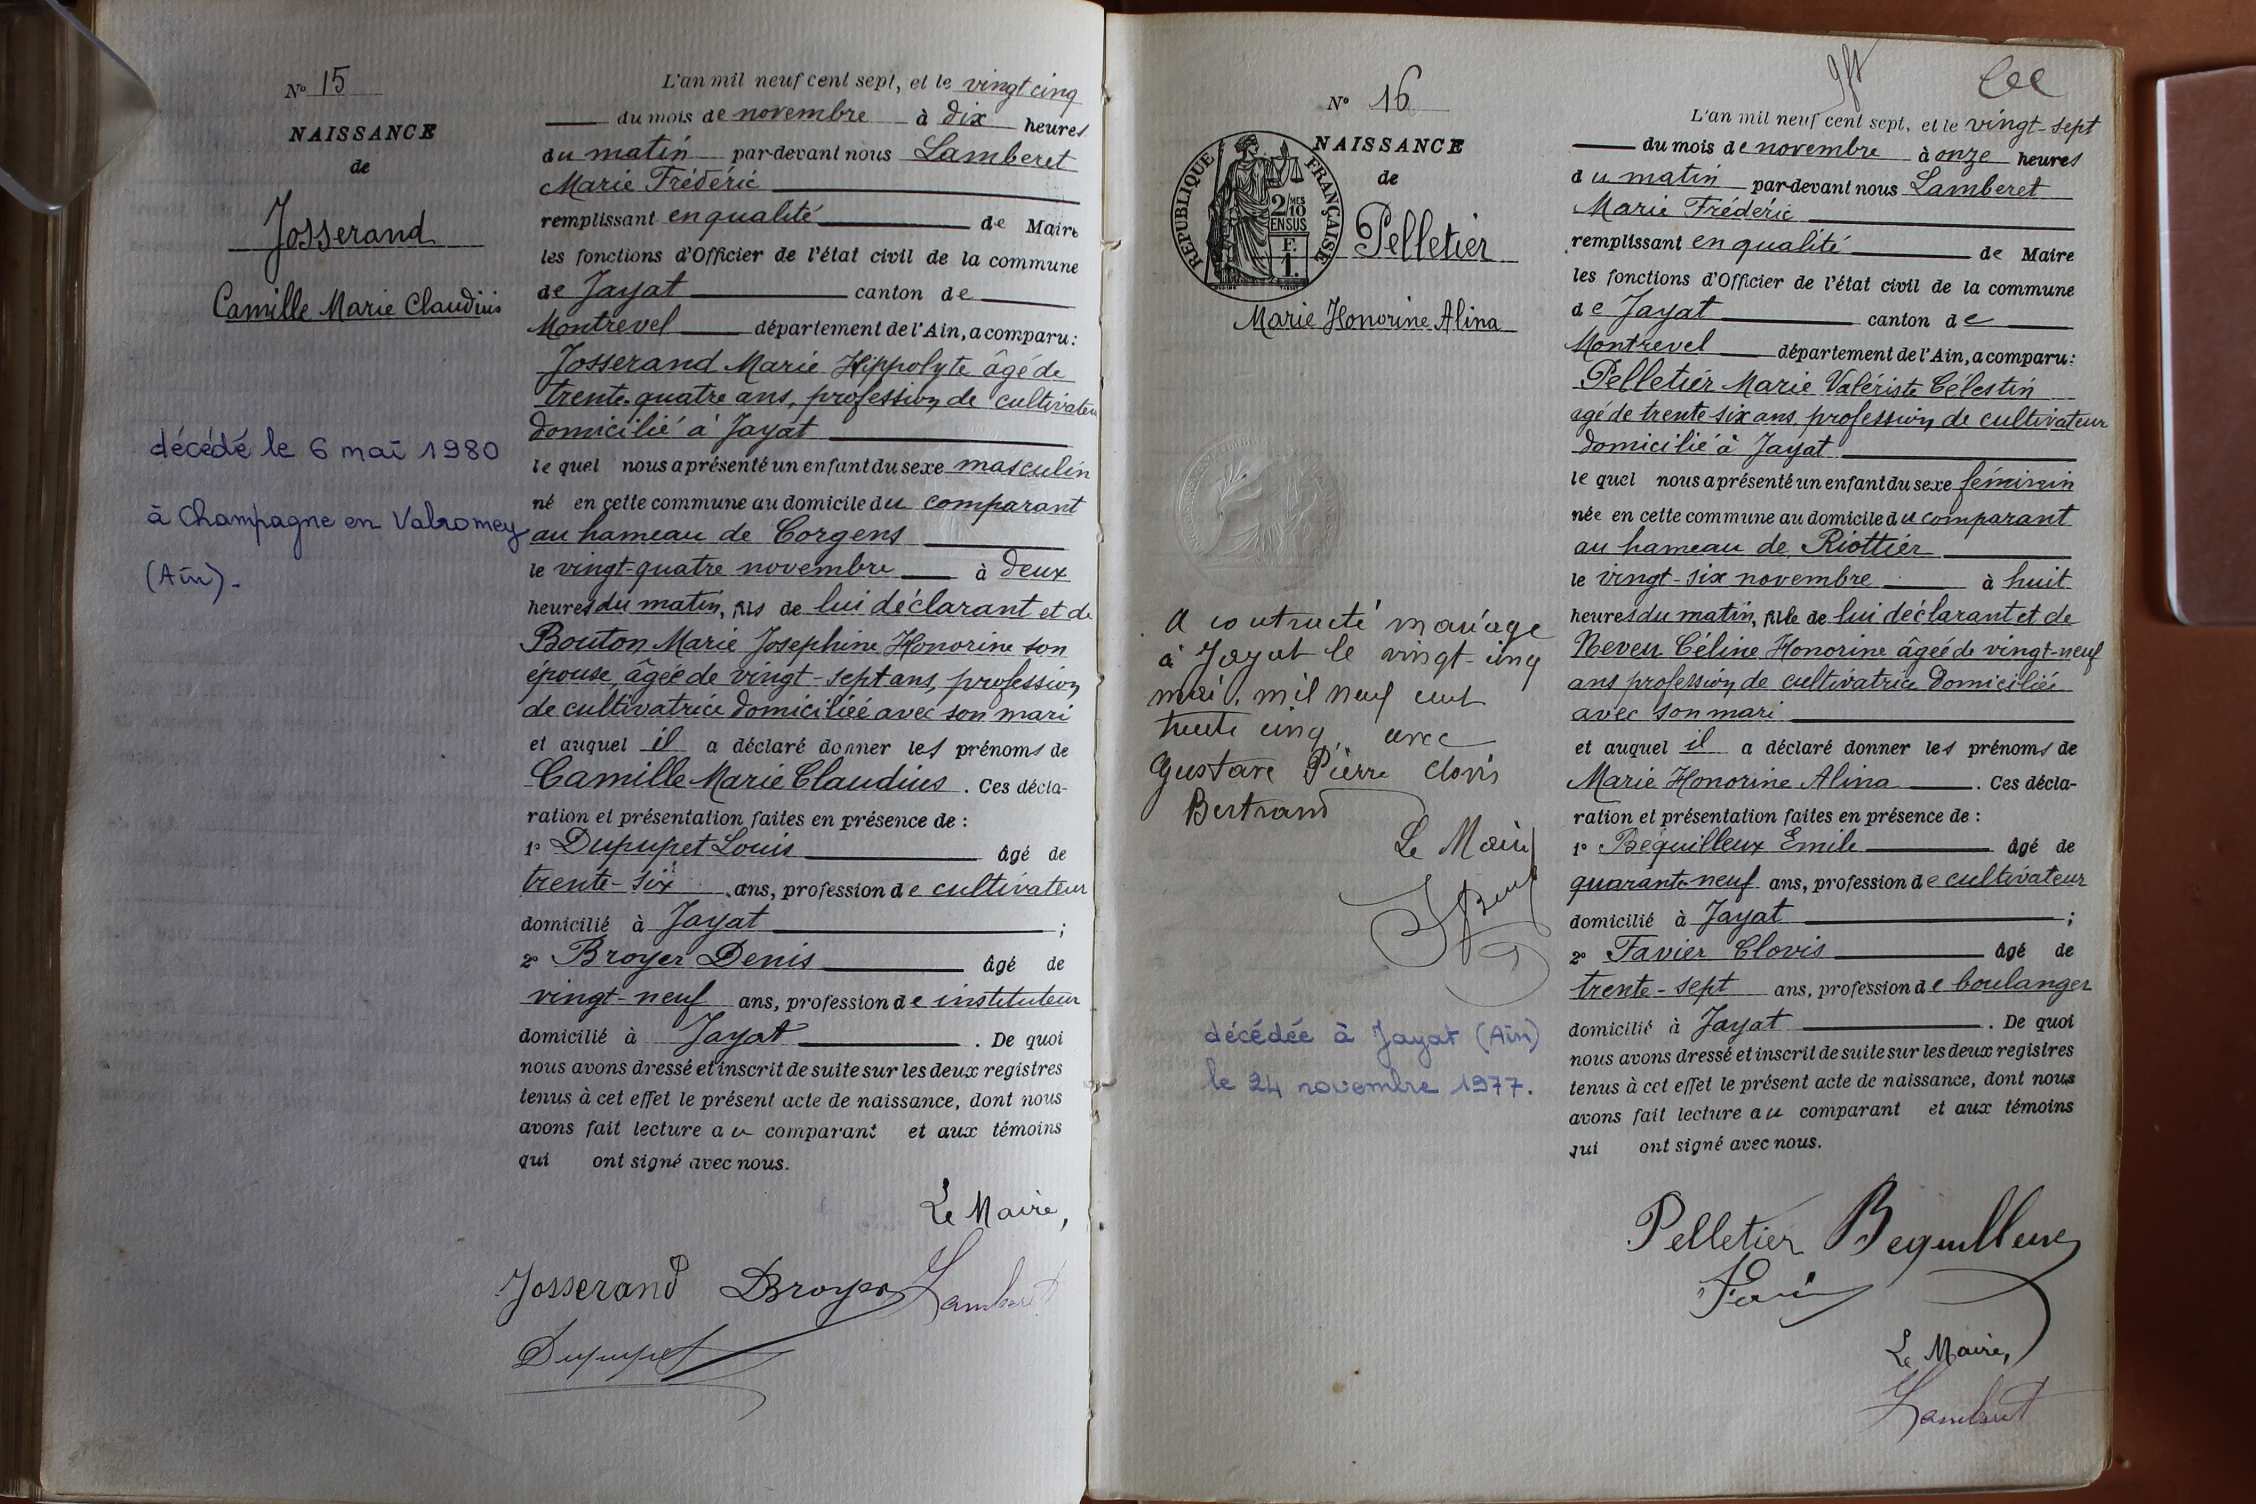 N° 15
NAISSANCE
de
Josserand
Camille Marie Claudius
décédé le 6 mai 1980
à Champagne en Valromey
(Ain).
L'an mil neuf cent sept, et le vingt cinq
du mois de novembre à dix heures
du matin par-devant nous Lamberet
Marie Frédéric
remplissant en qualité de Maire
les fonctions d'Officier de l'état civil de la commune
de Jayat canton de
Montrevel département de l'Ain, a comparu:
Josserand Marie Hippolyte âgé de
trente-quatre ans, profession de cultivateur
domicilié à Jayat
lequel nous a présenté un enfant du sexe masculin
né en cette commune au domicile du comparant
au hameau de Corgens
le vingt-quatre novembre à deux
heures du matin, fils de lui déclarant et de
Bouton Marie Josephine Honorine son
épouse, âgée de vingt-sept ans, profession
de cultivatrice domiciliée avec son mari
et auquel il a déclaré donner les prénoms de
Camille Marie Claudius. Ces décla-
ration et présentation faites en présence de :
1° Dupupet Louis âgé de
trente-six ans, profession de cultivateur
domicilié à Jayat ;
2° Broyer Denis âgé de
vingt-neuf ans, profession de instituteur
domicilié à Jayat. De quoi
nous avons dressé et inscrit de suite sur les deux registres
tenus à cet effet le présent acte de naissance, dont nous
avons fait lecture au comparant et aux témoins
qui ont signé avec nous.
Le Maire,
Josserand DBroyer Lamberet
Dupupet
N° 16
NAISSANCE
de
RÉPUBLIQUE FRANÇAISE
2/10 MES
EN SUS
F.
1.
Pelletier
Marie Honorine Alina
A contracté mariage
à Jayat le vingt-cinq
mai, mil neuf cent
trente cinq avec
Gustave Pierre Clovis
Bertrand
Le Maire
décédée à Jayat (Ain)
le 24 novembre 1977.
L'an mil neuf cent sept, et le vingt-sept
du mois de novembre à onze heures
du matin par-devant nous Lamberet
Marie Fréderic
remplissant en qualité de Maire
les fonctions d'Officier de l'état civil de la commune
de Jayat canton de
Montrevel département de l'Ain, a comparu:
Pelletier Marie Valériste Célestin
agé de trente six ans, profession de cultivateur
domicilié à Jayat
lequel nous a présenté un enfant du sexe féminin
née en cette commune au domicile du comparant
au hameau de Riottier
le vingt-six novembre à huit
heures du matin, fille de lui déclarant et de
Neveu Céline Honorine âgée de vingt-neuf
ans profession de cultivatrice domiciliée
avec son mari
et auquel il a déclaré donner les prénoms de
Marie Honorine Alina. Ces décla-
ration et présentation faites en présence de :
1° Béquilleux Emile âgé de
quarante-neuf ans, profession de cultivateur
domicilié à Jayat ;
2° Favier Clovis âgé de
trente-sept ans, profession de boulanger
domicilié à Jayat. De quoi
nous avons dressé et inscrit de suite sur les deux registres
tenus à cet effet le présent acte de naissance, dont nous
avons fait lecture au comparant et aux témoins
qui ont signé avec nous.
Pelletier Bequilleux
Le Maire,
Lamberet